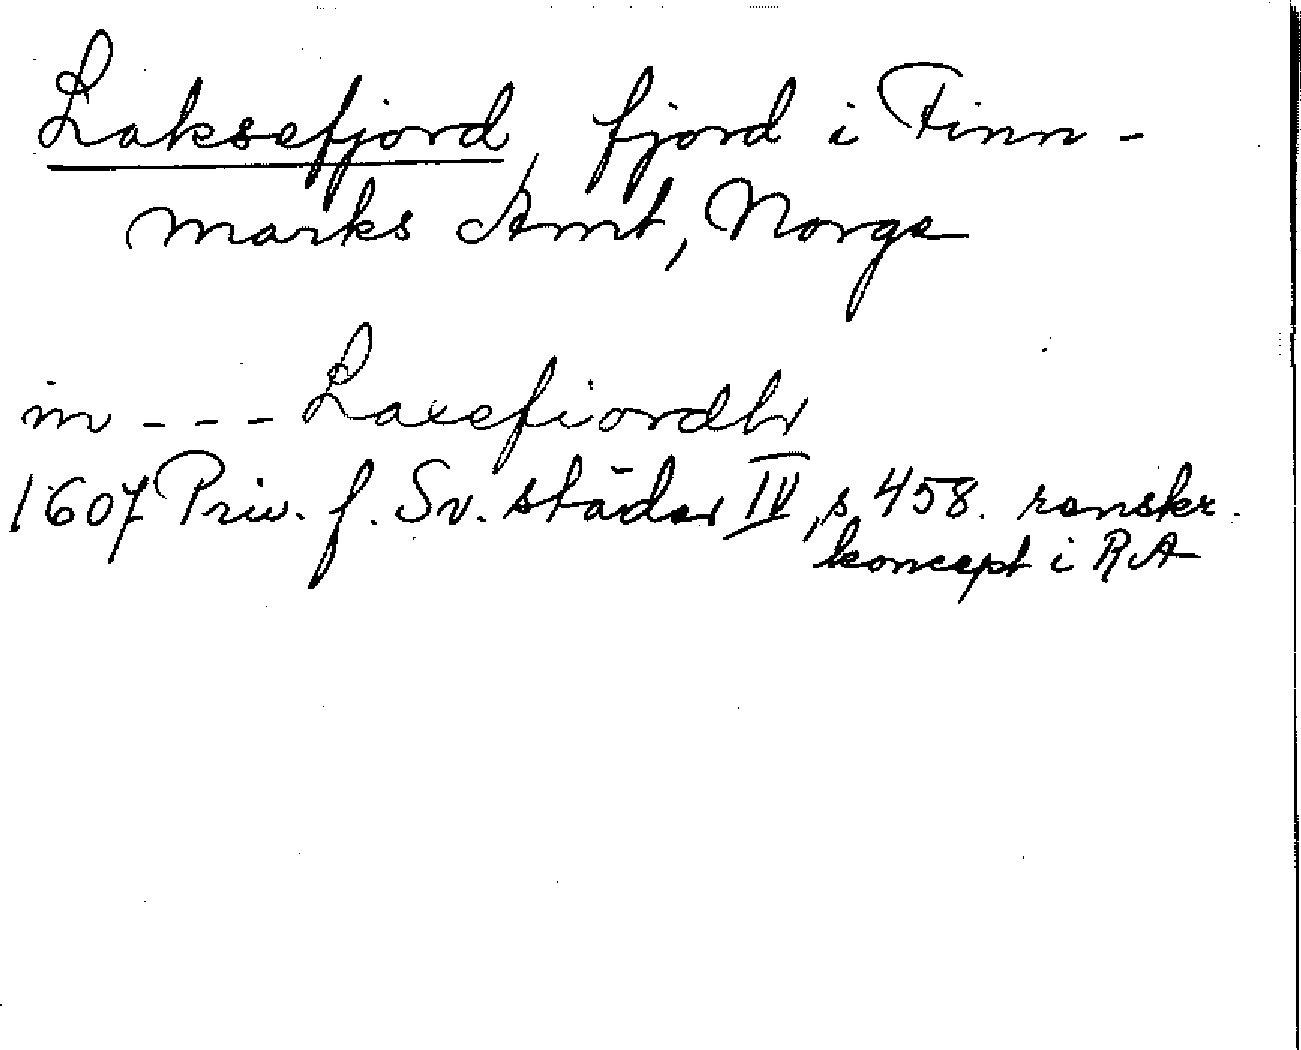 Laksefjord, fjord i Finn-
marks Amt, Norge
in --- Laxefiordh
1607 Priv. f. Sv. städer IV, s. 458. renskr.
koncept i RA